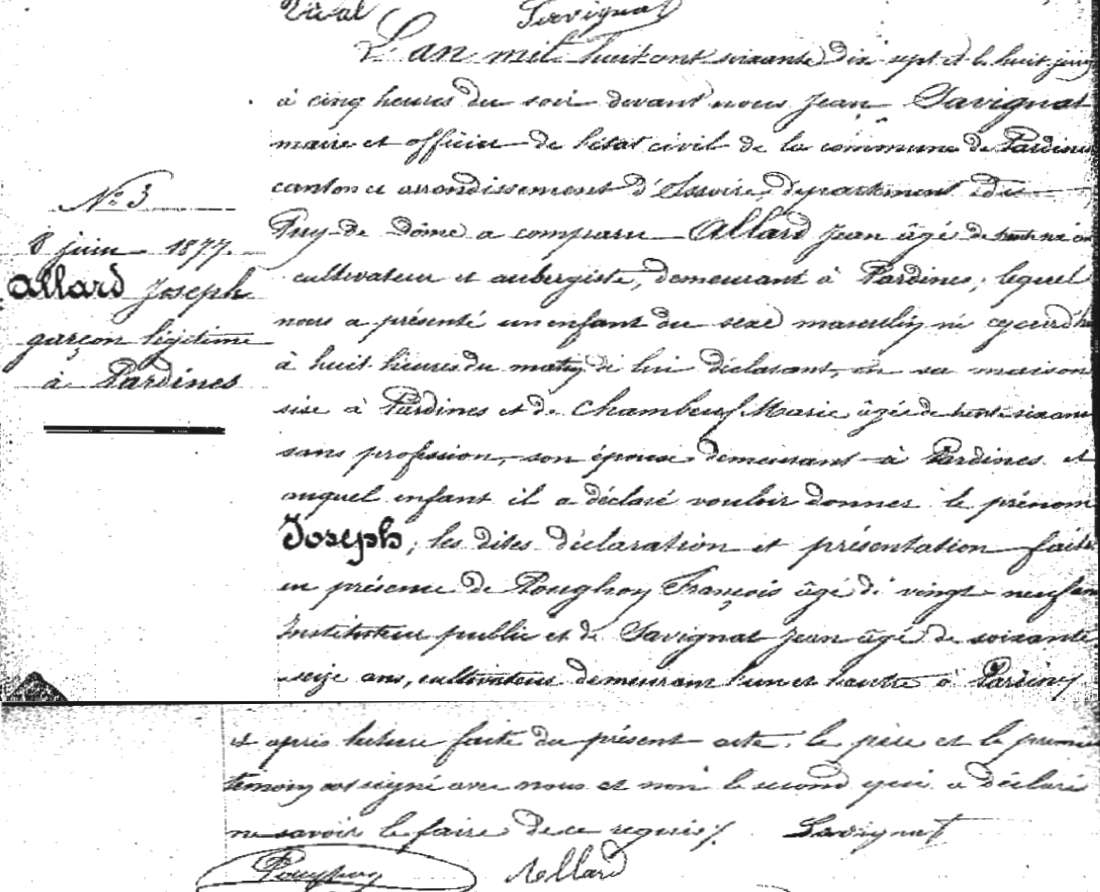 Vidal Savignat
L'an mil huit cent soixante dix sept et le huit juin
à cinq heures du soir devant nous Jean Savignat
maire et officier de l'état civil de la commune de Pardines
canton et arrondissement d'Issoire, département du
N° 3
Puy-de Dôme a comparu Allard Jean âgé de ans
8 juin 1877.
Allard Joseph
garçon légitime
à Pardines
cultivateur et aubergiste, demeurant à Pardines, lequel
nous a présenté un enfant du sexe masculin né cejourd'hui
à huit heures du matin de lui déclarant, en sa maison
sise à Pardines et de Chambeuf Marie âgée de trente six ans
sans profession, son épouse demeurant à Pardines et
auquel enfant il a déclaré vouloir donner le prénom
Joseph; les dites déclaration et présentation faites
en présence de François âgé de vingt neuf ans
Instituteur public et de Savignat Jean âgé de soixante
seize ans, cultivateur demeurant l'un et l'autre à Pardines
et après lecture faite du présent acte, le père et le premier
témoin ont signé avec nous et non le second qui a déclaré
ne savoir le faire de ce requis /. Savignat
Allard